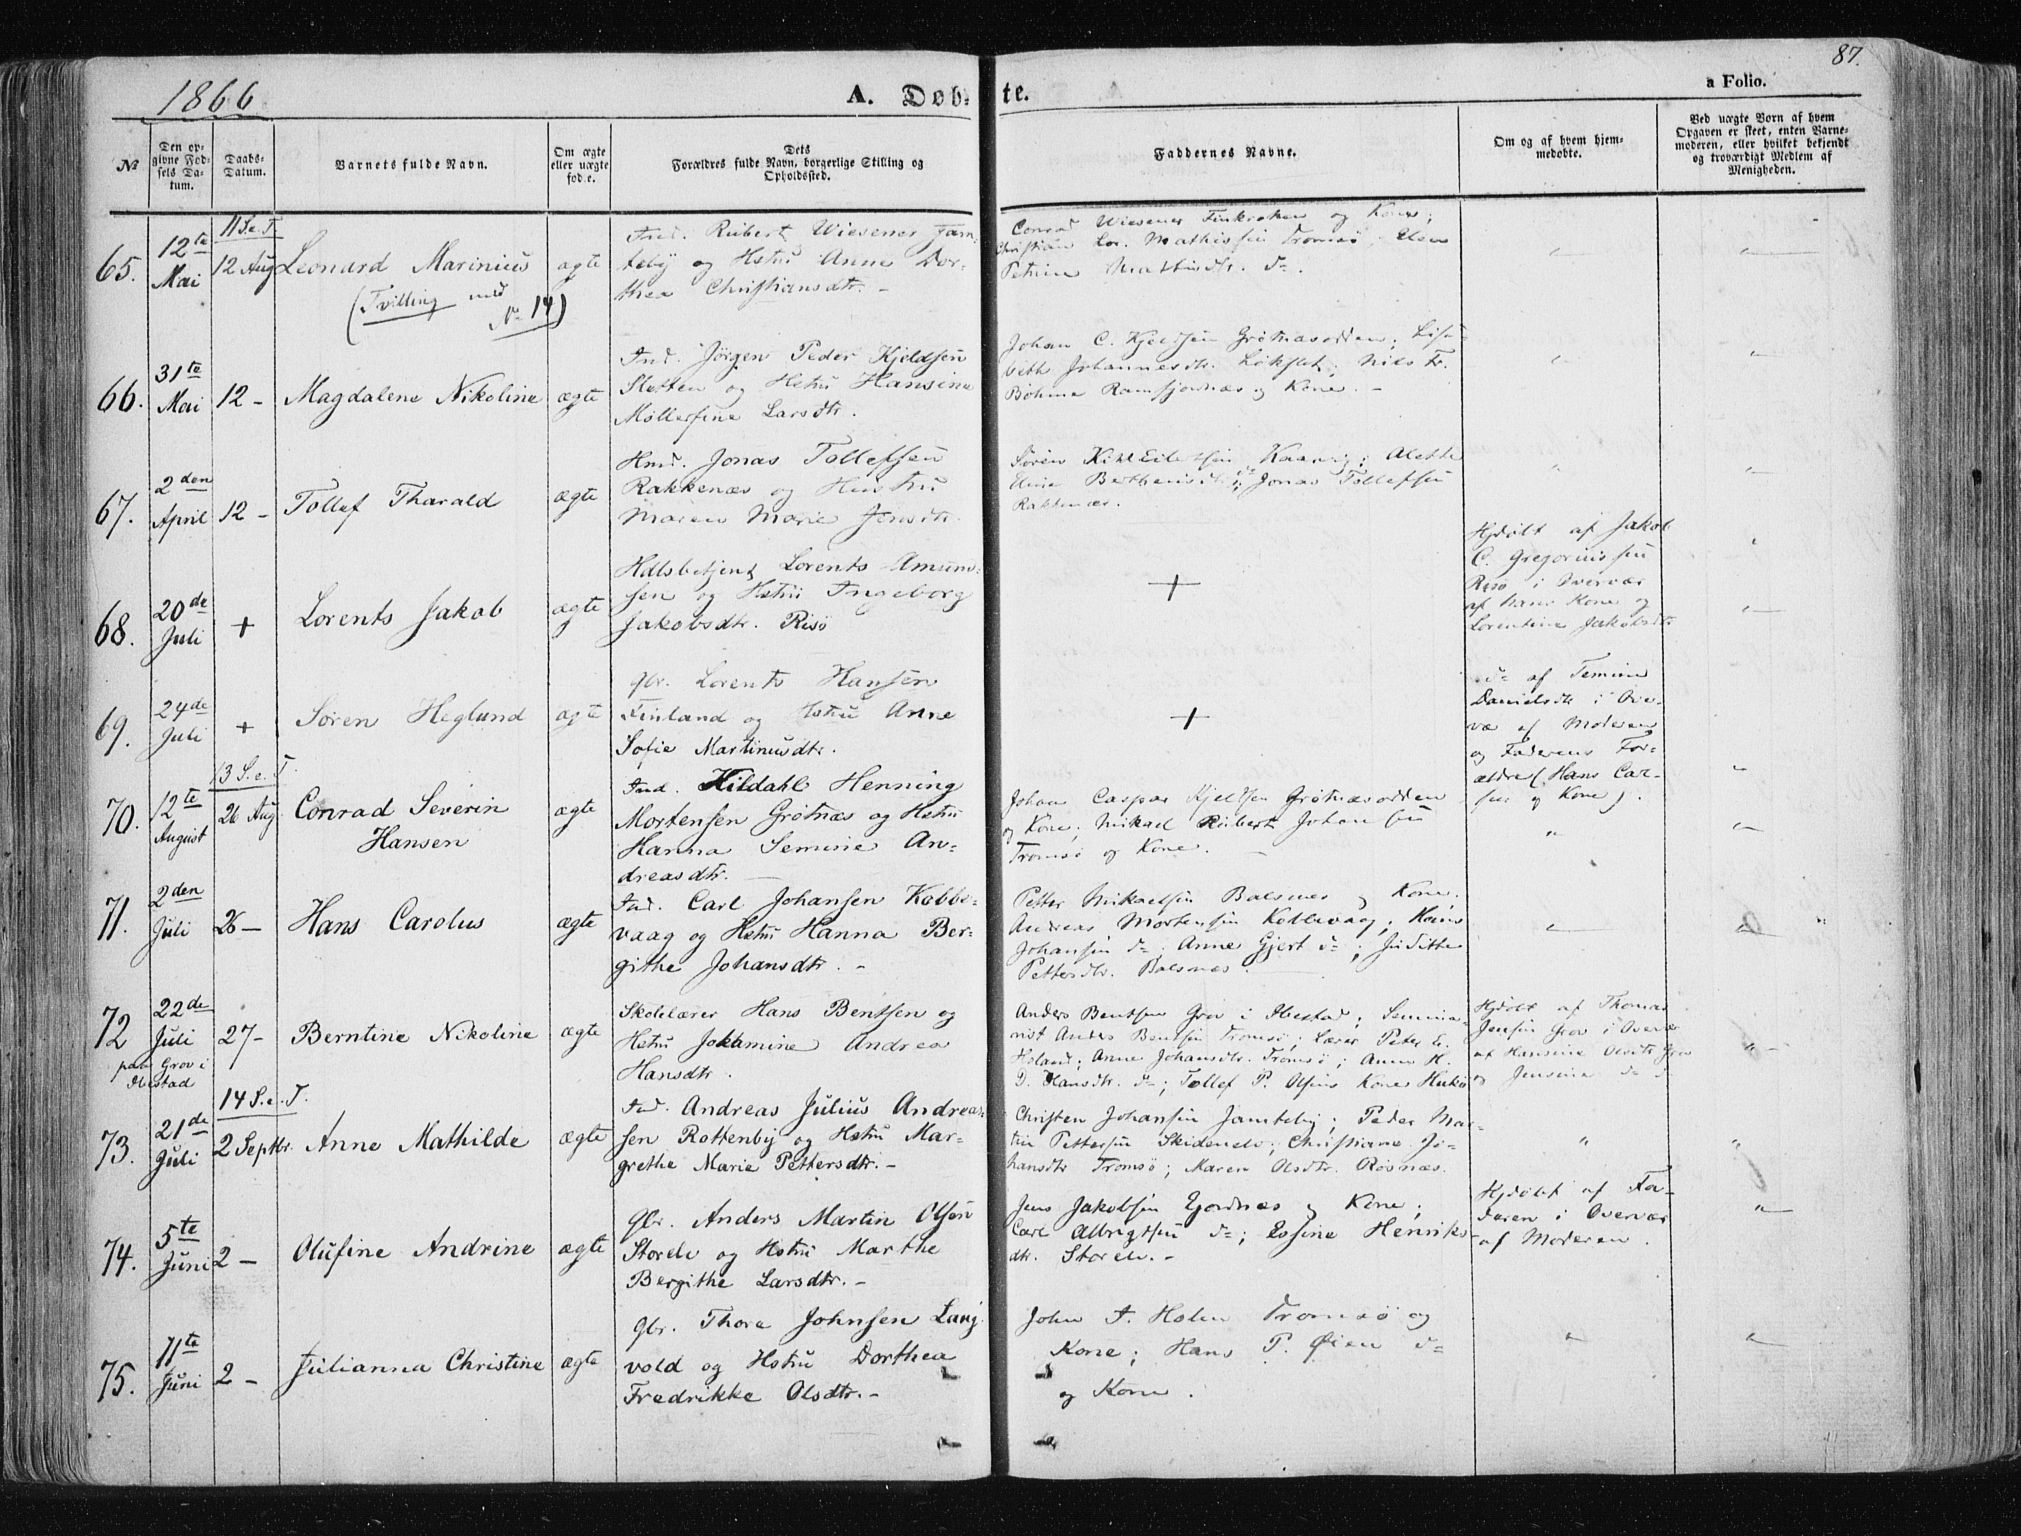 1866
A. Døb-
te.
87.
a Folio.
№
Den op-
givne Fød-
sels Da-
tum.
Daabs-
Datum.
Barnets fulde Navn.
Om ægte
eller uægte
føde.
Dets
Forældres fulde Navn, borgerlige Stilling og
Opholdssted.
Faddernes Navne.
Om og af hvem hjem-
medøbte.
Ved uægte Børn af hvem
Opgaven er skeet, enten Barne-
moderen, eller hvilket bekjendt
og troværdigt Medlem af
Menigheden.
11 S. e. T.
65.
12te
Mai
12 Aug
Leonard Marinius
(Tvilling med
№ 14)
ægte
Ind. Rubert Wiesener Jam-
teby og Hstru Anne Dor-
thea Christiansdtr. -
Conrad Wiesener Finkroken og Kone;
Christian Lor. Mathissen Tromsø; Elen
Petrine Mathisdtr. do.
66.
31te
Mai
12 -
Magdalene Nikoline
ægte
Ind. Jørgen Peder Kjeldsen
Sletten og Hstru Hansine
Møllerfine Larsdtr.
Johan C. Kjeldsen Grøtnæsodden; Lisa-
beth Johannesdtr. Løkslet; Nils Fr.
Bøhme Ramfjordnæs og Kone. -
67.
2den
April
12 -
Tollef Tharald
ægte
Hmd. Jonas Tollefsen
Rakkenæs og Hustru
Maren Marie Jensdtr.
Søren Kihl Eilertsen Kaarvig; Alette
Elisa Berthensdtr. do; Jonas Tollefsen
Rakkenæs.
68.
20de
Juli
+
Lorents Jakob
ægte
Hdlsbetjent Lorents Amund-
sen og Hstru Ingeborg
Jakobsdtr. Risø
+
Hjdøbt af Jakob
C. Gregoriussen
Risø i Overvær
af hans Kone og
Lorentine Jakobsdtr.
69.
24de
Juli
+
Søren Heglund
ægte
Gbr. Lorents Hansen
Finland og Hstru Anne
Sofie Martinusdtr.
+
do af Temine
Danielsdtr i Over-
vær af Moderen
og Faderens For-
ældre (Hans Car-
sen og Kone).
13 S. e. T.
70.
12te
August
26 Aug
Conrad Severin
Hansen
ægte
Ind. Hildahl Henning
Mortensen Grøtnæs og Hstru
Hanna Semine An-
dreasdtr.
Johan Caspar Kjeldsen Grøtnæsodden
og Kone; Mikael Rubert Johansen
Tromsø og Kone.
71.
2den
Juli
26 -
Hans Carolus
ægte
Ind. Carl Johansen Kobbe-
vaag og Hstru Hanna Ber-
githe Johansdtr. -
Petter Mikaelsen Balsnes og Kone.
Andreas Mortensen Kobbevaag; Hans
Johansen do; Anne Gjert do; Judithe
Pettersdtr. Balsnes.
72
22de
Juli
paa Grov i
Ibestad
27 -
Berntine Nikoline
ægte
Skolelærer Hans Bentsen og
Hstru Jokkumine Andrea
Hansdtr.
Anders Bentsen Grov i Ibestad; Semina-
rist Anders Bentsen Tromsø; Lærer Peter E.
Holand; Anne Johansdtr. Tromsø; Anne H.
D. Hansdtr. do; Tollef P. Olsens Kone
Hjdøbt af Thomas
Jensen Grov i Overvær
af Hansine Olsdtr Grov
og Jensine do
14 S. e. T.
73.
21de
Juli
2 Septbr.
Anne Mathilde
ægte
Ind. Andreas Julius Andrea-
sen Rottenby og Hstru Mar-
grethe Marie Pettersdtr. -
Christen Johansen Jamteby; Peder Mar-
tin Pettersen Skidenelv; Christiane Jo-
hansdtr Tromsø; Maren Olsdtr. Røsnæs.
74.
5te
Juni
2 -
Olufine Andrine
ægte
Gbr. Anders Martin Olsen
Storelv og Hstru Marthe
Bergithe Larsdtr. -
Jens Jakobsen Ejordnæs og Kone;
Carl Albrigtsen do; Essine Henriks-
dtr. Storelv. -
Hjdøbt af Fa-
deren i Overvær
af Moderen.
75.
11te
Juni
2 -
Julianna Christine
ægte
Gbr. Thore Johnsen Lang-
vold og Hstru Dorthea
Fredrikke Olsdtr. -
John A. Holm Tromsø og
Kone; Hans P. Øien do
og Kone.